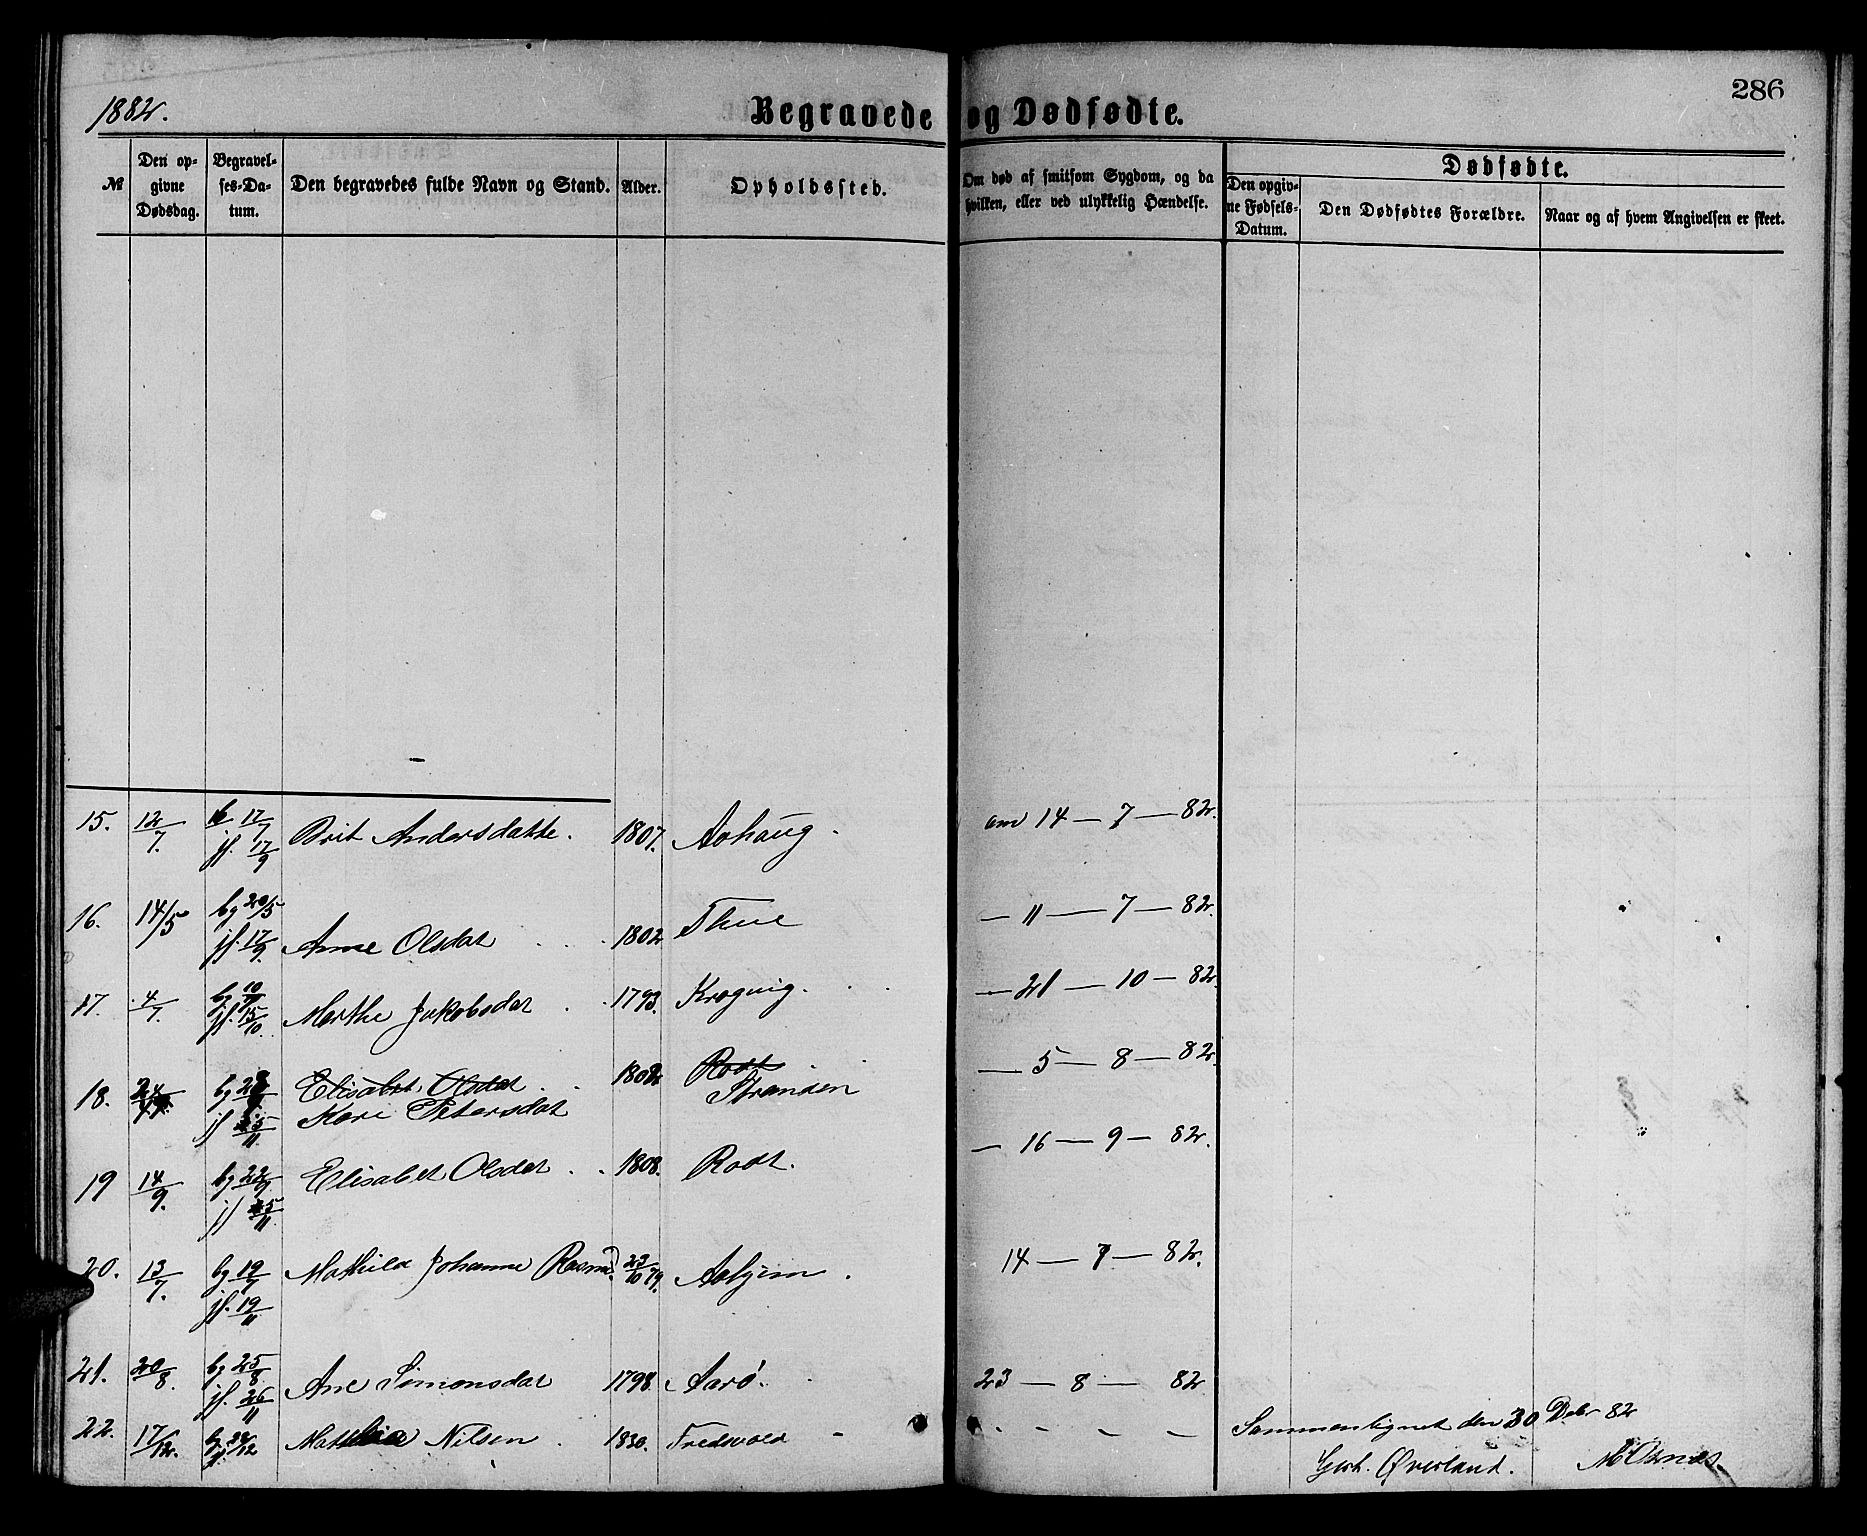 286
1882.
Begravede og Dødfødte.
№
Den op-
givne
Dødsdag.
Begravel-
ses-Da-
tum.
Den begravedes fulde Navn og Stand.
Alder.
Opholdssted.
Om død af smitsom Sygdom, og da
hvilken, eller ved ulykkelig Hændelse.
Dødfødte.
Den opgiv-
ne Fødsels-
Datum.
Den Dødfødtes Forældre.
Naar og af hvem Angivelsen er skeet.
15. 12/7. 17/7 Brit Andersdatte. 1807. Aohaug. am 14 — 7 — 82.
jf. 17/9
16. 14/5 bg 20/5 Anne Olsdat 1802 Thue — 11 — 7 — 82.
jf. 17/9.
17. 4/7. bg 10/7 Marthe Jakobsdat 1793. Kroguig. — 21 — 10 — 82
jf. 15/10.
18. bg Elisabet Olsdat 1808 Rodt — 5 — 8 — 82
jf 5/11 Kari Petersdat Stranden
19 14/9. bg 22/9 Elisabet Olsdat 1808. Rodt. — 16 — 9 — 82.
jf 5/11
20. 13/7. bg 19/7 Mathilde Johanne Rasm. 23/10 79. 14 — 7 — 82.
jf. 19/11
21. 20/8. bg 25/8. Ane Simonsdat 1798. Aarø. 23 — 8 — 82
jf. 26/11
22. 17/12. Nilsen 1830. Fredsvold - - - - -
Sammenlignet den 30 Debr 82
Gerh. Øverland.